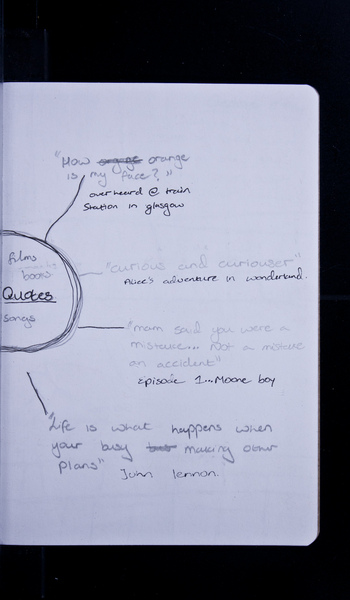 "How orange
is my face?"
overheard @ train
Station in glasgow
films
books
Quotes
songs
"curious and curiouser"
Alice's adventure in wonderland.
"mam said you were a
mistake... not a mistake
an accident"
Episode 1...Moone boy
"Life is what happens when
your busy making other
plans"
John lennon.